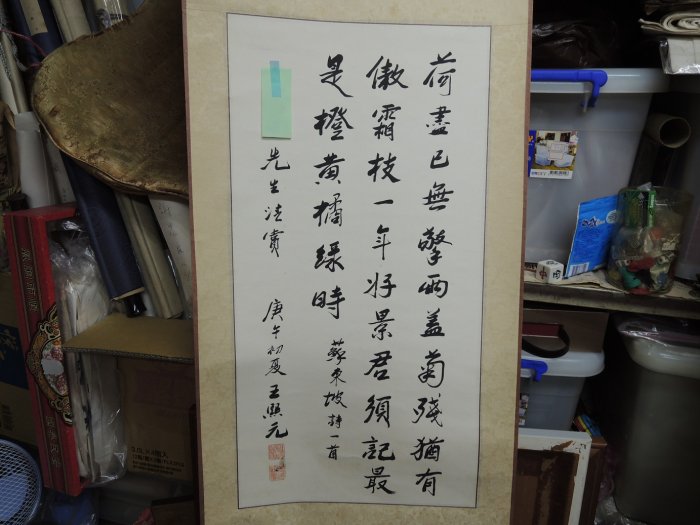 荷盡已無擎雨蓋菊殘猶有
傲霜枝一年好景君須記最
是橙黃橘綠時
蘇東坡詩一首
先生法賞
庚午初夏 王熙元